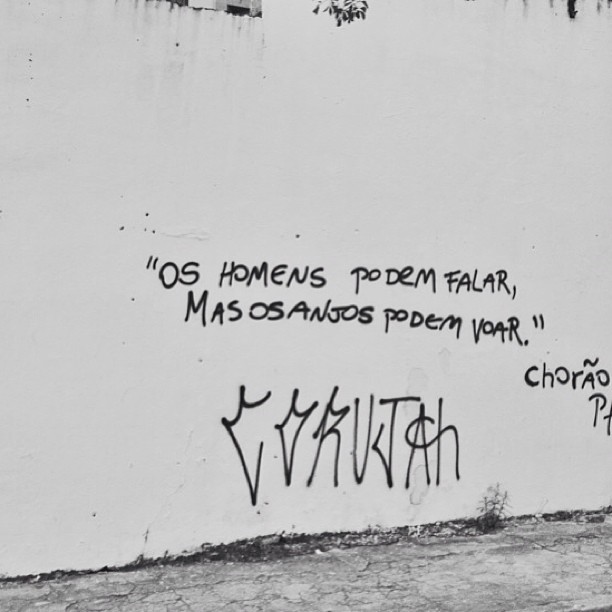 "OS HOMENS PODEM FALAR,
MAS OS ANJOS PODEM VOAR."
chorão
CORUJAh